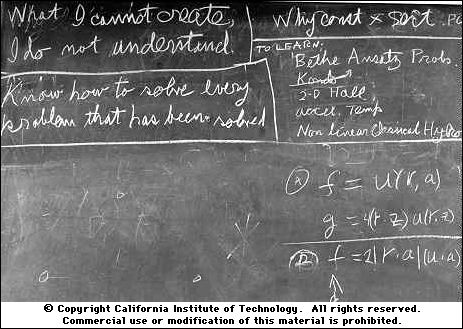 What I cannot create,
I do not understand.
Know how to solve every
problem that has been solved
Why const × sort . Po
TO LEARN:
Bethe Ansatz Probs.
Kondo
2-D Hall
accel. Temp
Non Linear Classical Hydro
Ⓐ f = u(r, a)
g = 4(r·z) u(r, z)
Ⓑ f = 2|r·a|(u·a)
© Copyright California Institute of Technology. All rights reserved.
Commercial use or modification of this material is prohibited.